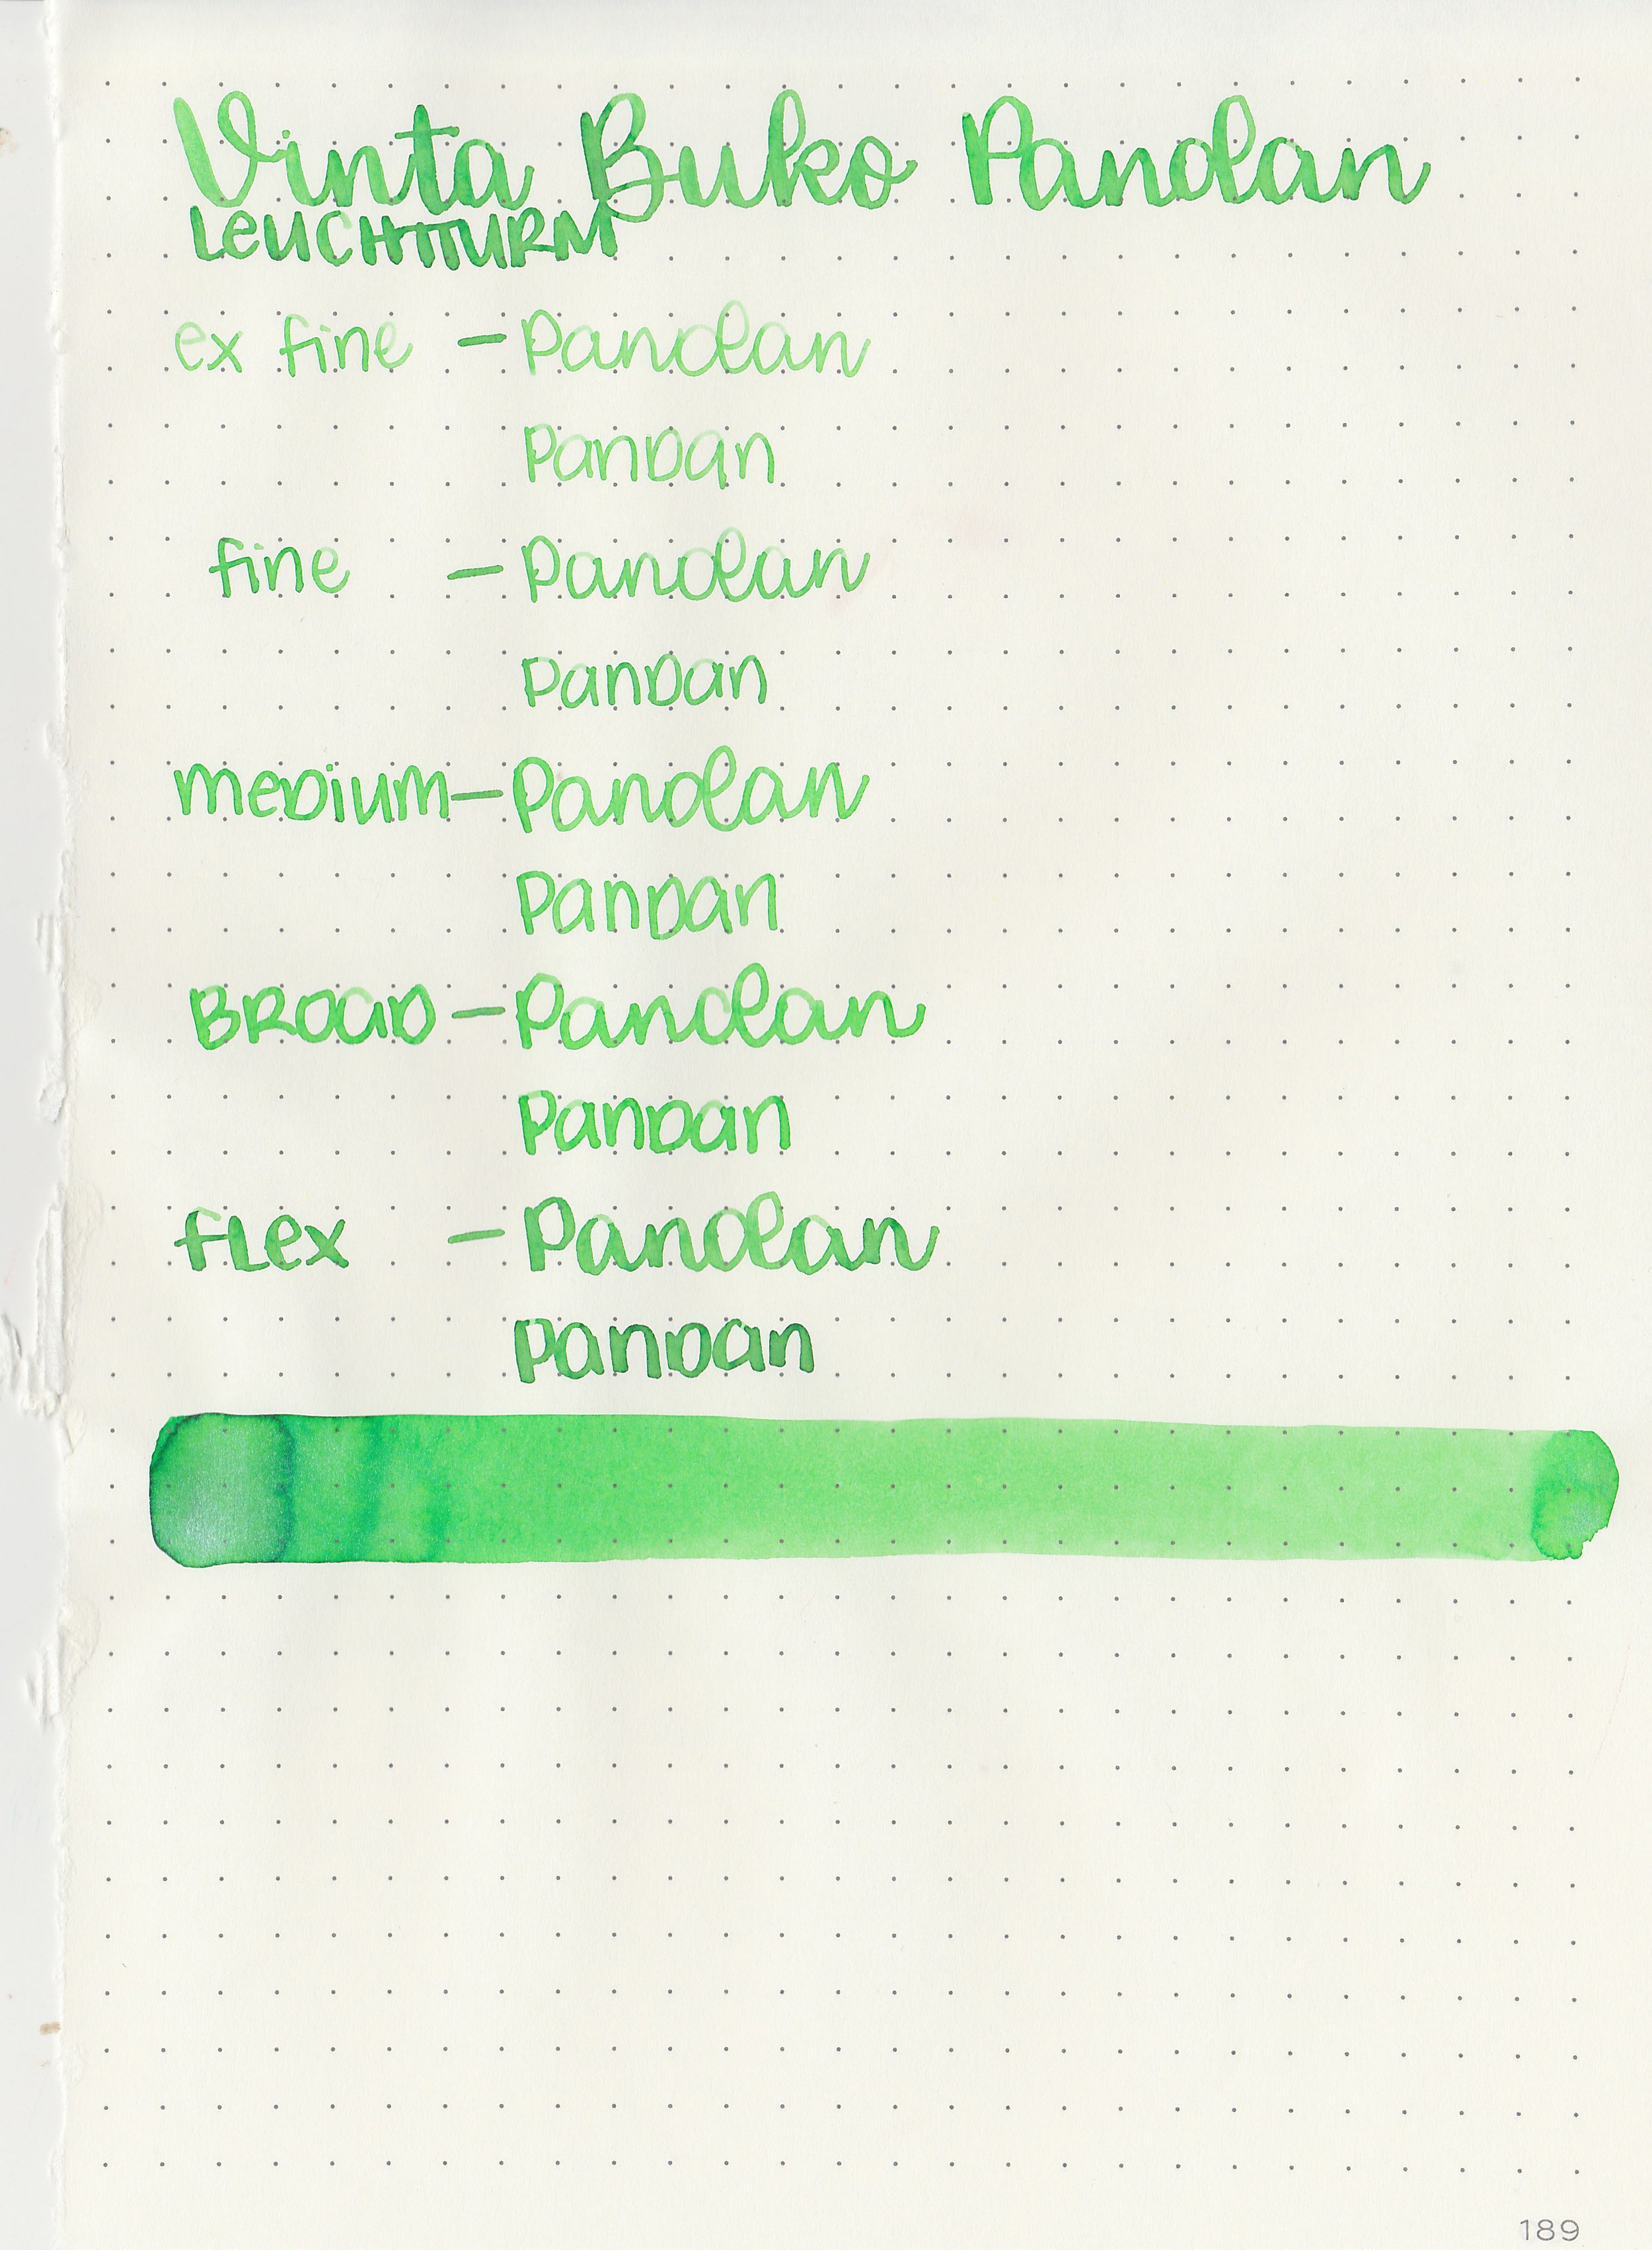 Vinta Buko Pandan
LEUCHTTURM
ex fine - Pandan
PanDan
fine - Pandan
PanDan
meDium - Pandan
PanDan
BROAD - Pandan
PanDan
flex - Pandan
PanDan
189